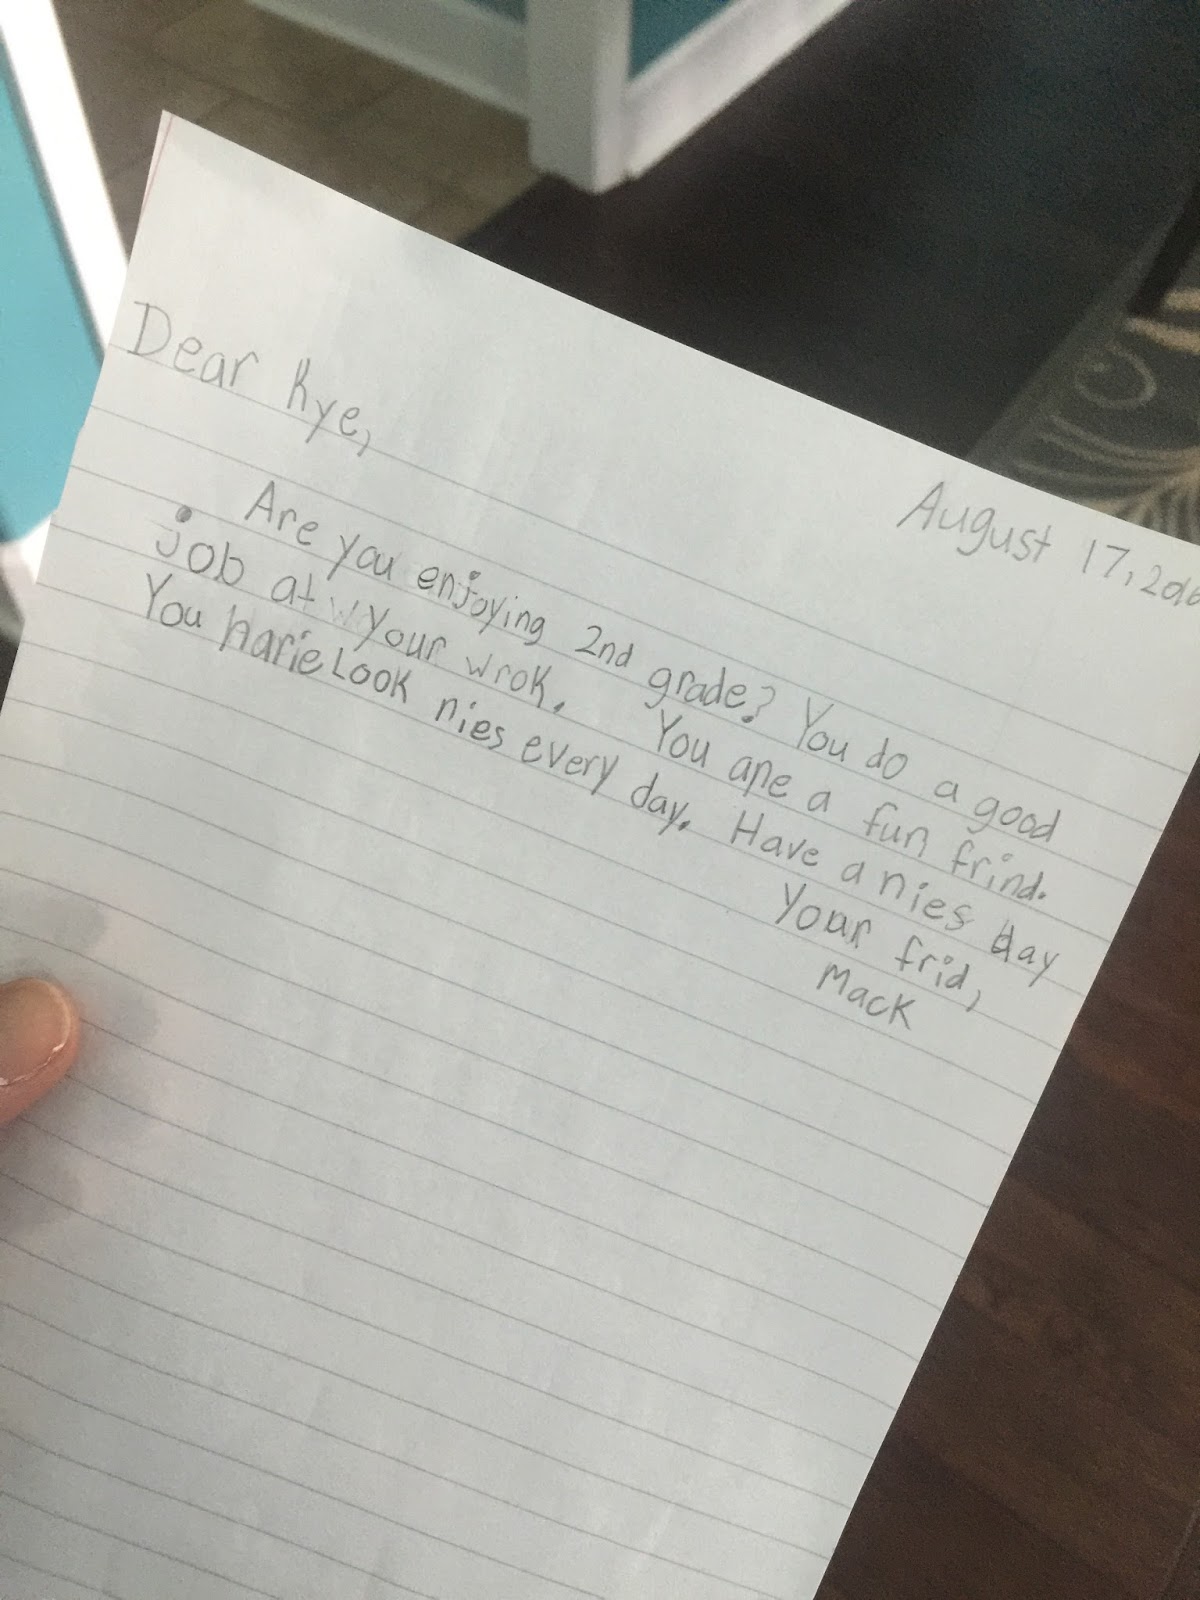 August 17, 2016
Dear Kye,
Are you enjoying 2nd grade? You do a good
job at your wrok. You are a fun frind.
You harie Look nies every day. Have a nies day
Your frid,
Mack